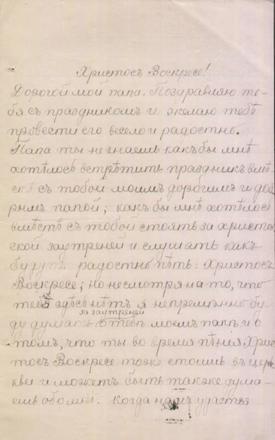 Христосъ Воскресе!
Дорогой мой папа. Поздравляю те-
бя съ праздникомъ и желаю тебѣ
провести его весело и радостно.
Папа ты не знаешь какъ бы мнѣ
хотѣлось встрѣтить праздникъ вмѣ-
стѣ съ тобой моимъ дорогимъ и доб-
рымъ папой; какъ бы мнѣ хотѣлось
вмѣстѣ съ тобой стоять за христов-
ской заутреней и слушать какъ
будутъ радостно пѣть: Христосъ
Воскресе; но несмотря на то, что
тебя здѣсь нѣтъ я непремѣнно бу-
за заутреней
ду думать о тебѣ моемъ папѣ и о
томъ, что ты во время пѣнія Хрис-
тосъ Воскресе тоже стоишь въ церк-
ви и можетъ быть также дума-
ешь обо мнѣ. Когда намъ удастся